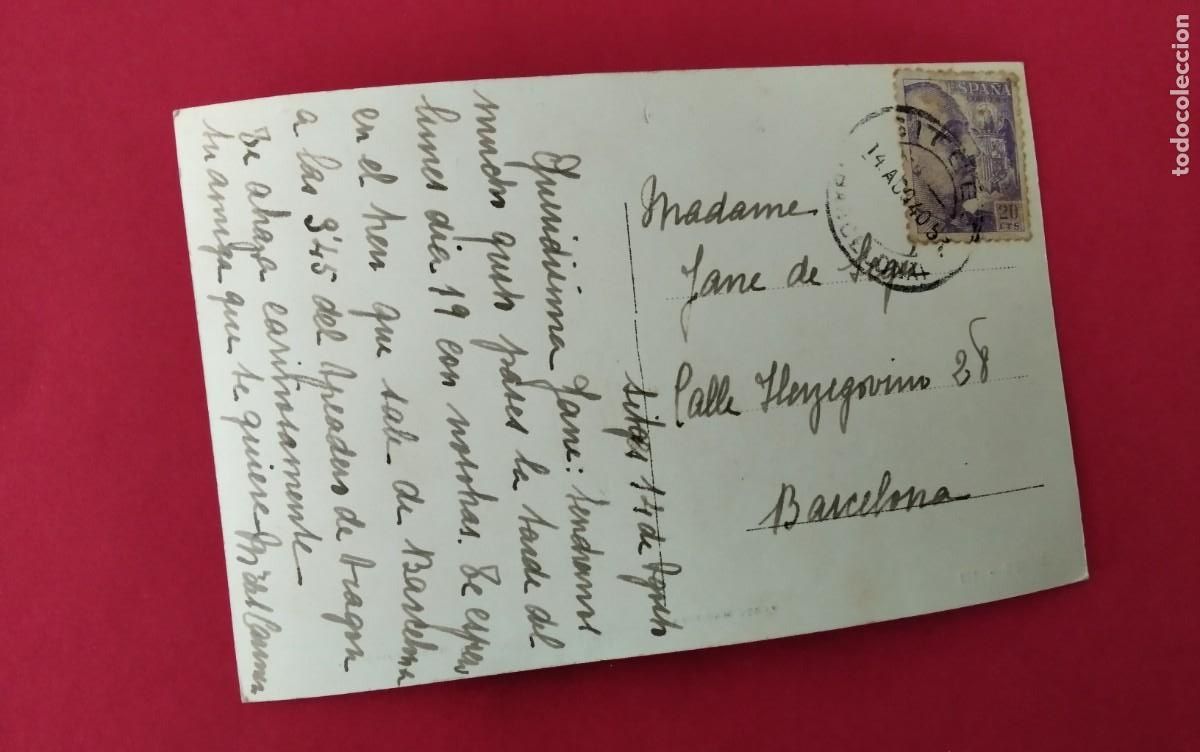 Sitges 14 de Agosto
Queridisima Jane: tendremos
mucho gusto pases la tarde del
lunes dia 19 con nosotras. Te espero
en el tren que sale de Barcelona
a las 9'45 del Apeadero de Aragon
Te abraza cariñosamente
tu amiga que te quiere Mª del Carmen
Madame
Jane de
Calle Herzegovino 28
Barcelona
ESPAÑA
20
CTS
14 AGO 40
todocoleccion